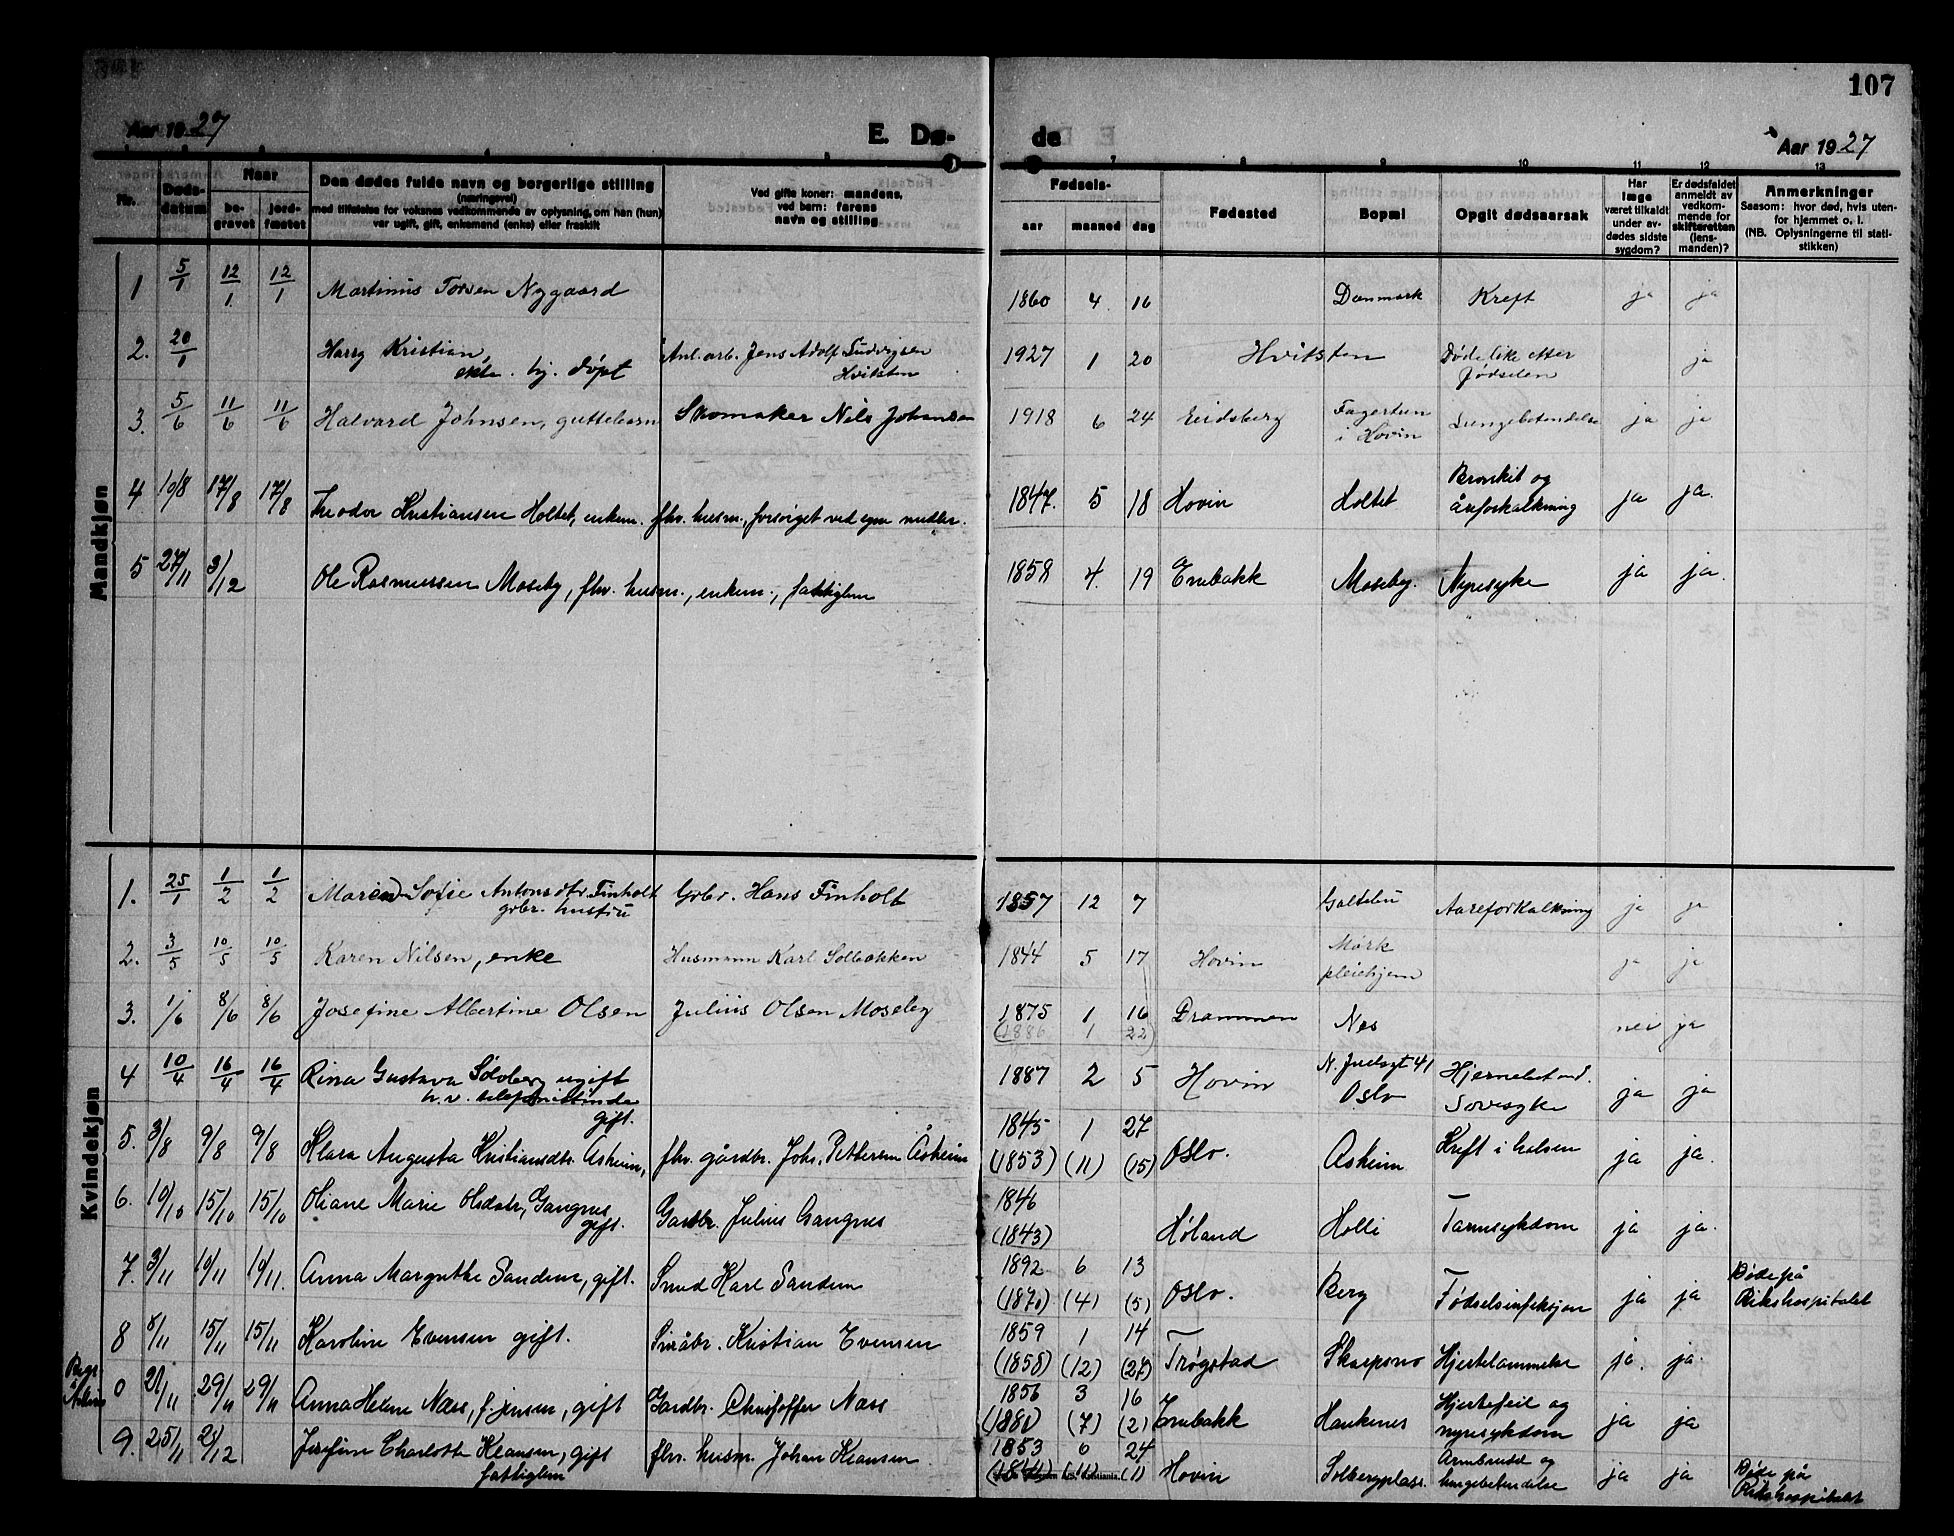 107
Aar 1927
E. Dø-
de
Aar 1927
Nr.
Døds-
datum
Naar
be-
gravet
jord-
fæstet
Den dødes fulde navn og borgerlige stilling
(næringsvei)
med tilføielse for voksnes vedkommende av oplysning, om han (hun)
var ugift, gift, enkemand (enke) eller fraskilt
Ved gifte koner: mandens,
ved barn: farens
navn og stilling
7
8
9
10
11
12
13
Fødsels-
aar maaned dag
Fødested
Bopæl
Opgit dødsaarsak
Har
læge
været tilkaldt
under av-
dødes sidste
sygdom?
Er dødsfaldet
anmeldt av
vedkom-
mende for
skifteretten
(lens-
manden)?
Anmerkninger
Saasom: hvor død, hvis uten-
for hjemmet o. l.
(NB. Oplysningerne til stati-
stikken)
Mandkjøn
1 5/1 12/1 12/1 Martinius Nygaard 1860 4 16 Danmark Kreft ja ja
2. 20/1 Harry Kristian, Anl.arb. Jens Adolf Ludvigsen 1927 1 20 Hvitsten Døde like etter ja
ekte. hj. døpt Hvitsten fødselen
3. 5/6 11/6 11/6 Halvard Johnsen, guttebarn Skomaker Nils Johansen 1918 6 24 Eidsberg Fagertun Lungebetendelse ja ja
i Hovin
4 10/8 17/8 17/8 Theodor Kristiansen Holtet, enkem. fhv. husm., forsørget ved egne midler. 1847. 5 18 Hovin Holtet Bronkit og ja ja.
åreforkalkning
5 27/11 3/12 Ole Rasmussen Moseby, fhv. husm., enkem., fattiglem 1858 4. 19 Enebakk Moseby. Nyresyke ja ja.
Kvindekjøn
1. 25/1 1/2 1/2 Maren Sofie Antonsdtr. Finholt Grbr. Hans Finholt 1857 12 7 Galtebu Aareforkalkning ja ja
grbr. hustru
2. 3/5 10/5 10/5 Karen Nilsen, enke Husmann Karl Solbakken 1844 5 17 Hovin Mørk ja ja
pleiehjem
3. 1/6 8/6 8/6 Josefine Albertine Olsen Julius Olsen Moseby 1875 1 16 Drammen Nes nei ja
(1886 1 22)
4 10/4 16/4 16/4 Rina Gustava Solberg ugift 1887 2 5 Hovin N. Juelsgt 41 Hjernebet. ja ja
h.v. telefonistinde Oslo Sovesyke
5. 3/8 9/8 9/8 Klara Augusta Kristiansdtr. Askeim, gift. fhv. gårdbr. Johs. Pettersen Åskeim 1845 1 27 Oslo. Askeim Kreft i halsen ja ja.
(1853) (11) (15)
6. 10/10 15/10 15/10 Oliane Marie Olsdatr, Gangnes gift. Gardbr. Julius Gangnes 1846 Høland Holli Tarmsykdom ja ja.
(1843)
7. 3/11 10/11 10/11. Anna Margrethe Sandem, gift. Smed Karl Sandem 1892 6 13 Oslo. Berg Fødselsinfeksjon ja ja Døde på
(1870) (4) (5) Rikshospitalet
8 8/11 15/11 15/11 Karoline Evensen gift. Småbr. Kristian Evensen 1859 1 14 Trøgstad Skarpsno Hjertelammelse ja. ja.
(1858) (12) (27)
0 21/11 29/11 29/11 Anna Helene Næss, f. Jensen, gift Gardbr. Christoffer Næss 1856 3 16 Enebakk Haukenes Hjertefeil og ja ja
(1881) (7) (2) nyresykdom
9. 25/11 2/12 Josefine Charlotte Klausen, gift fhv. husm. Johan Klausen. 1853 6 24 Hovin Solbergplass. Armbrudd og ja ja Døde på
fattiglem (11) (1) lungebetendelse Rikshospitalet